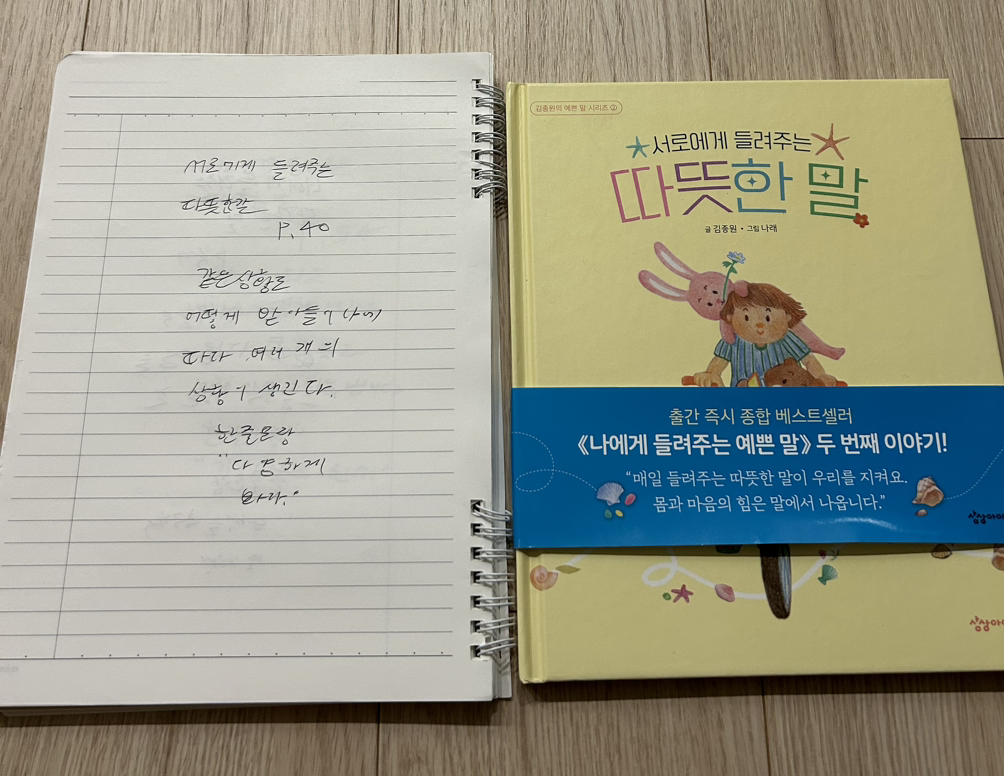 서로에게 들려주는
따뜻한말
P.40
같은상황도
어떻게 받아들이냐에
따라 여러 개의
상황이 생긴다.
한줄문장
"다양하게
봐라."
김종원의 예쁜 말 시리즈 ②
서로에게 들려주는
따뜻한 말
글 김종원 • 그림 나래
출간 즉시 종합 베스트셀러
《나에게 들려주는 예쁜 말》 두 번째 이야기!
"매일 들려주는 따뜻한 말이 우리를 지켜요.
몸과 마음의 힘은 말에서 나옵니다."
상상아이
상상아이